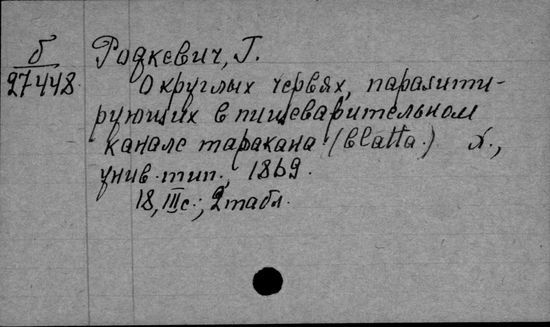 б Родкевич, Г.
27448. О круглых червях, паразити-
рующих в пищеварительном
канале таракана (Blatta.) Х.,
унив. тип., 1869.
18, III с.; 2 табл.